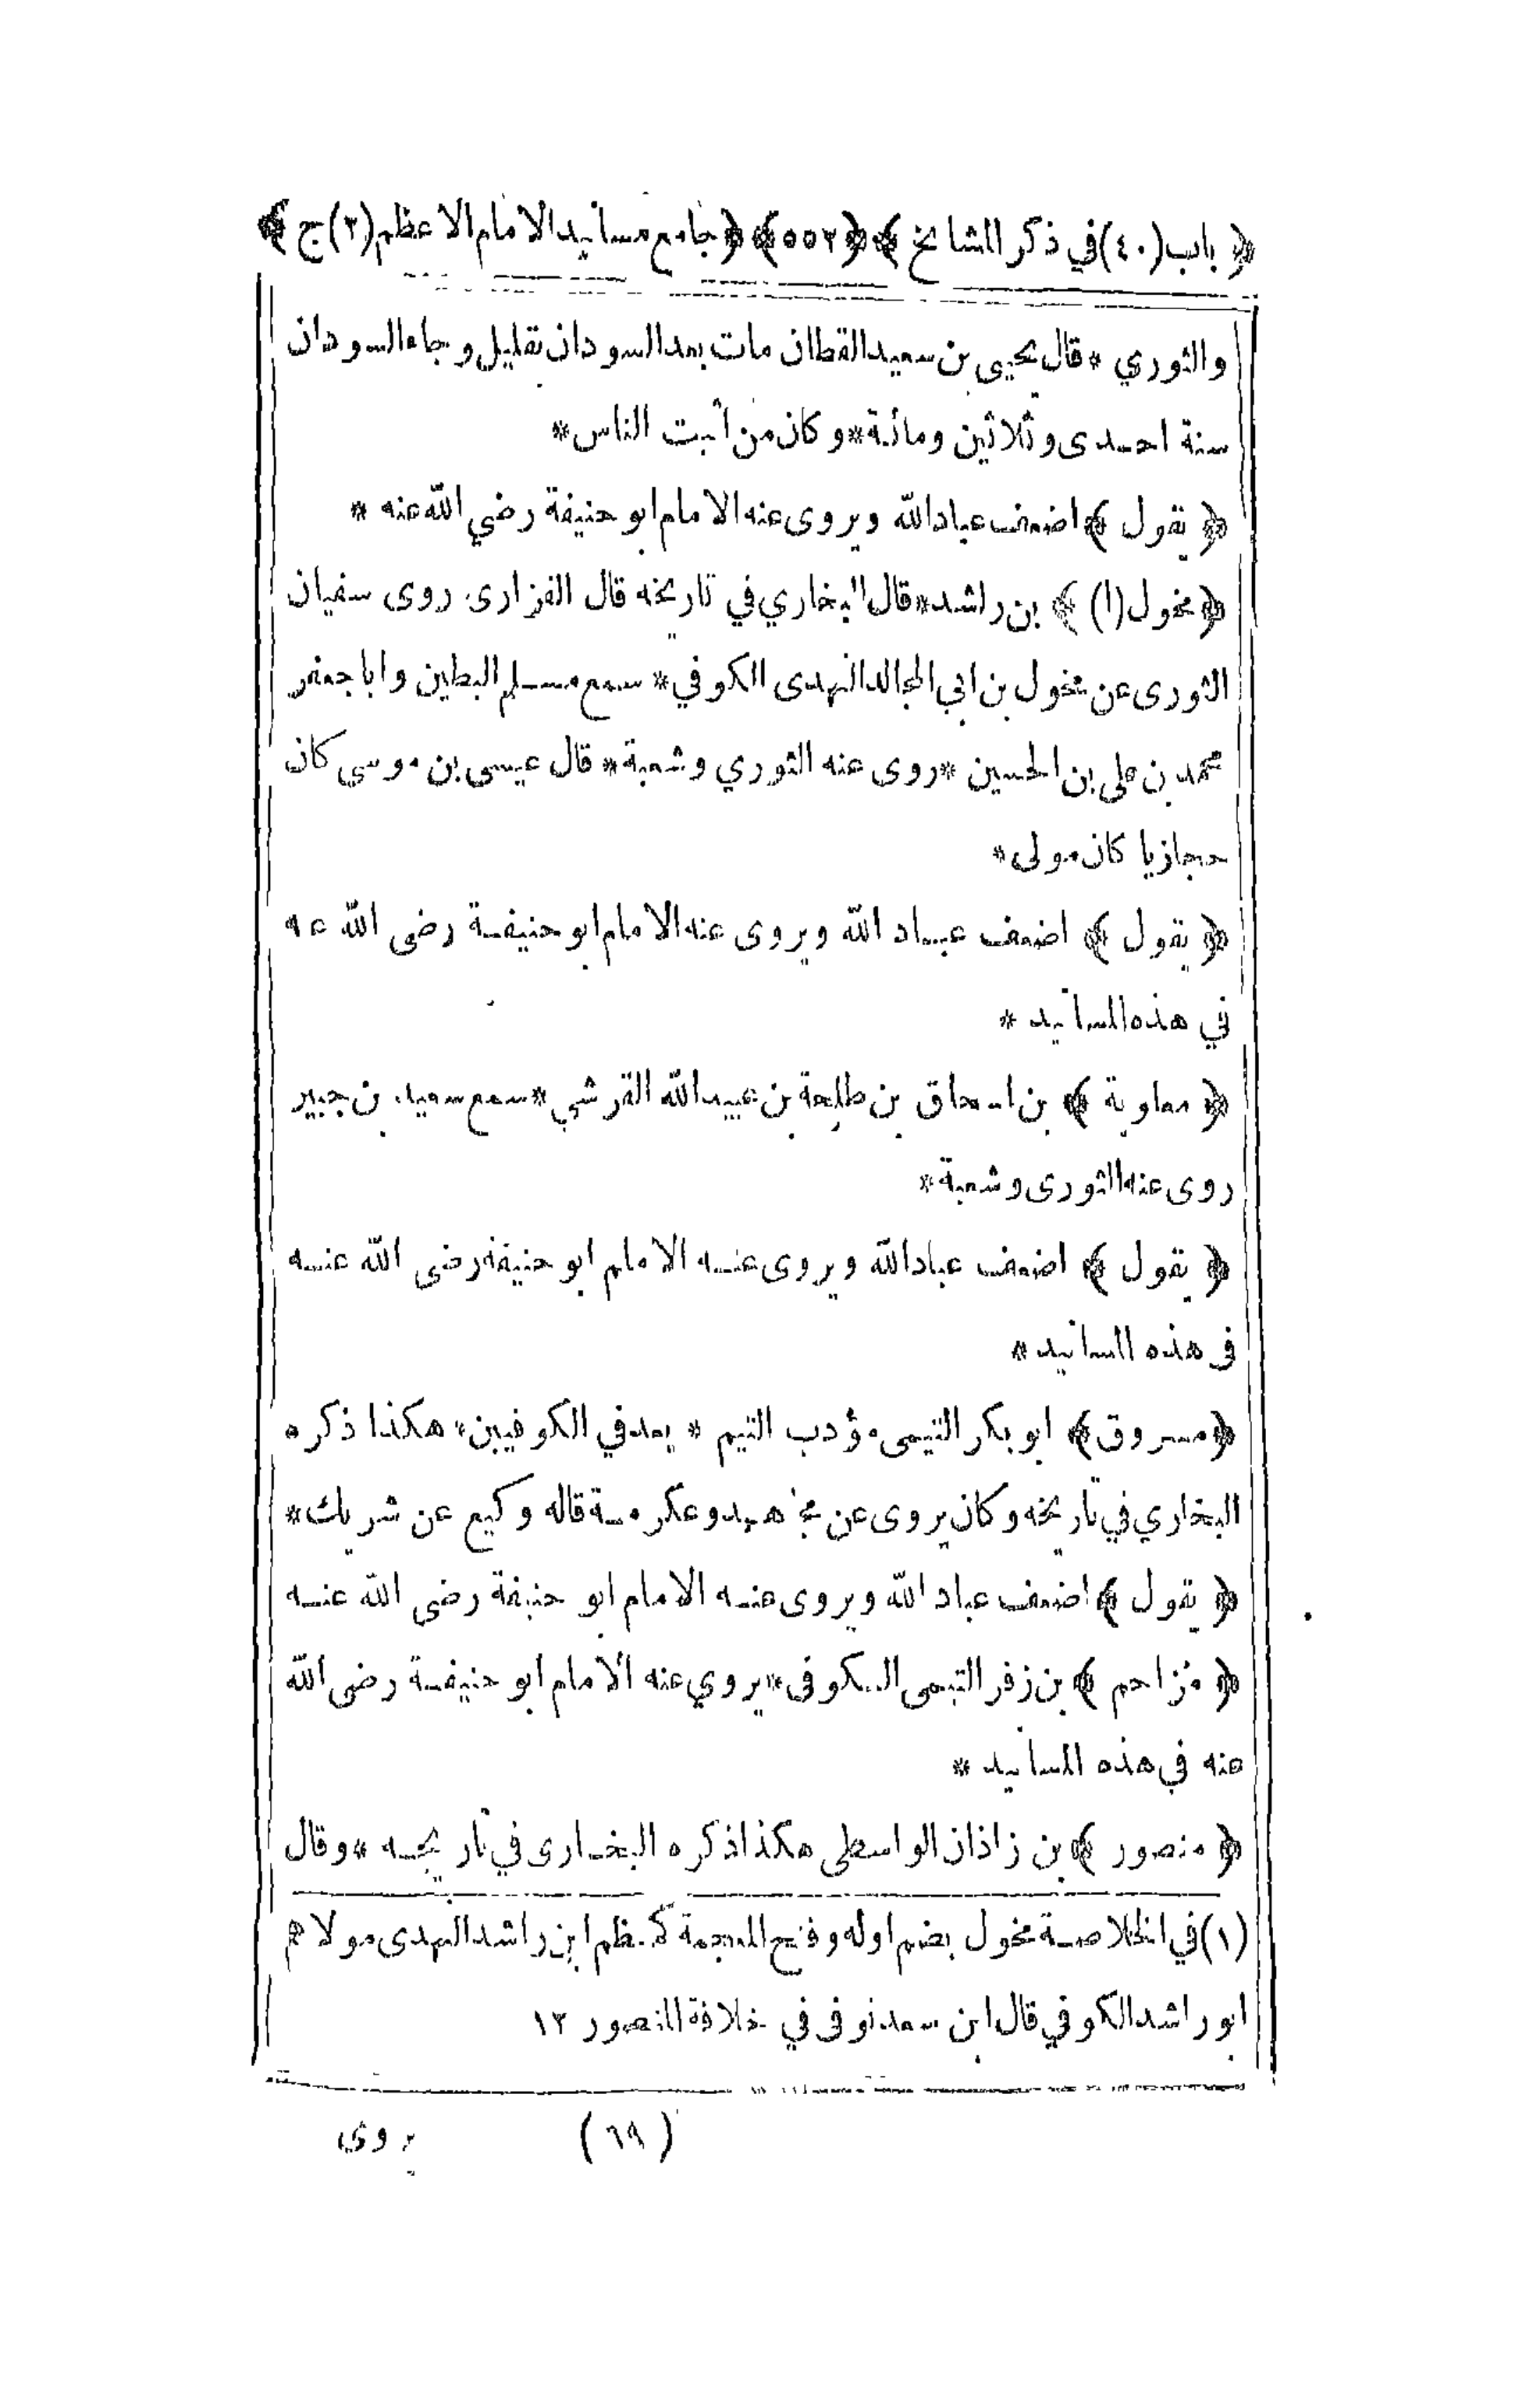 ﴿ باب (٤٠) في ذكر المشايخ ﴾ ﴿ ٥٥٢ ﴾ ﴿ جامع مسانيد الامام الاعظم (٢) ج ﴾
والثوري * قال يحيى بن سعيد القطان مات بعد السودان بقليل وجاء السودان
سنة احدى وثلاثين ومائة * وكان من أثبت الناس *
﴿ يقول ﴾ اضعف عباد الله ويروى عنه الامام ابو حنيفة رضي الله عنه *
﴿ مخول (١) ﴾ بن راشد * قال البخاري في تاريخه قال الفزارى روى سفيان
الثورى عن مخول بن ابي المجالد النهدى الكوفي * سمع مسلم البطين وابا جعفر
محمد بن على بن الحسين * روى عنه الثوري وشعبة * قال عيسى بن موسي كان
حجازيا كان مولى *
﴿ يقول ﴾ اضعف عباد الله ويروى عنه الامام ابو حنيفة رضى الله عنه
في هذه المسانيد *
﴿ معاوية ﴾ بن اسحاق بن طلحة بن عبيد الله القرشي * سمع سعيد بن جبير
روى عنه الثورى وشعبة *
﴿ يقول ﴾ اضعف عباد الله ويروى عنه الامام ابو حنيفة رضى الله عنه
فى هذه المسانيد *
﴿ مسروق ﴾ ابو بكر التيمى مؤدب التيم * يعد في الكوفيين * هكذا ذكره
البخاري في تاريخه وكان يروى عن مجاهد وعكرمة قاله وكيع عن شريك *
﴿ يقول ﴾ اضعف عباد الله ويروى عنه الامام ابو حنيفة رضى الله عنه
﴿ مزاحم ﴾ بن زفر التيمى الكوفى * يروي عنه الامام ابو حنيفة رضى الله
عنه في هذه المسانيد *
﴿ منصور ﴾ بن زاذان الواسطى هكذا ذكره البخارى في تاريخه * وقال
(١) في الخلاصة مخول بضم اوله وفتح المعجمة كمعظم ابن راشد النهدى مولاهم
ابو راشد الكوفي قال ابن سعد توفى في خلافة المنصور ١٢
(٦٩) يروى